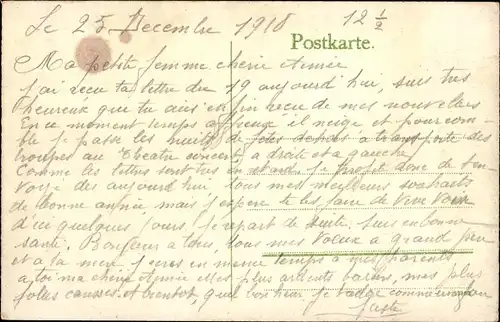 Le 25 Decembre 1918 12 1/2
Postkarte.
Ma petite femme cherie Aimée
j'ai recu ta lettre du 19 aujourd'hui, suis tres
heureux que tu aies enfin recu de mes nouvelles
En ce moment temps affreux il neige et pour com-
ble je passe les nuits de fetes dehors a transporte des
troupes au Theatre concert, a droite et a gauche
Comme les lettres sont tres en retard je profite donc de t'en-
voye des aujourd'hui, tous mes meilleurs souhaits
de bonne année, mais j'espere te les faire de vive voix
d'ici quelques jours, je repart de suite, suis en bonne
santé. Bonjour a tous, tous mes voeux a grand pere
et a ta mere j'ecris en meme temps a mes parents
a toi ma cherie Aimée mes plus ardents baisers, mes plus
folles caresses et bientot, quel bonheur, je t'adore comme un fou